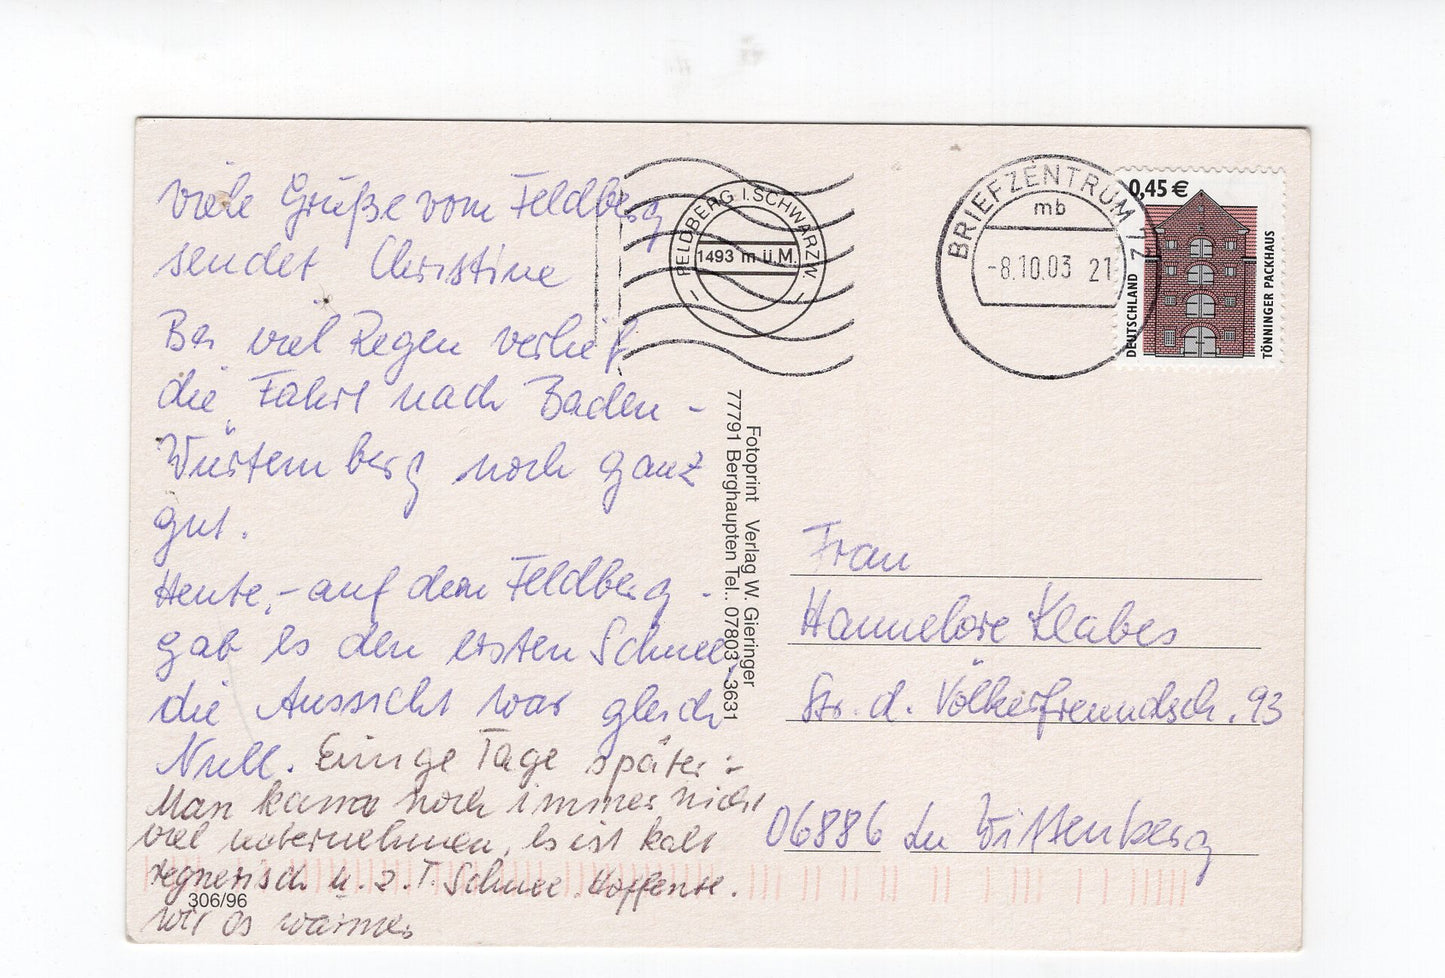 viele Grüße vom Feldberg
sendet Christine
Bei viel Regen verlief
die Fahrt nach Baden-
Würtemberg noch ganz
gut.
Heute, - auf dem Feldberg -
gab es den ersten Schnee,
die Aussicht war gleich
Null. Einige Tage später:
Man kann noch immer nicht
viel unternehmen, es ist kalt
regnerisch u. z. T. Schnee. Hoffentl.
wird es wärmer
306/96
FELDBERG I. SCHWARZW.
1493 m ü.M.
BRIEFZENTRUM 12
mb
-8.10.03 21
0,45 €
DEUTSCHLAND
TÖNNINGER PACKHAUS
Fotoprint Verlag W. Gieringer
77791 Berghaupten Tel.. 07803 - 3631
Frau
Hannelore Klabes
Str. d. Völkerfreundsch. 93
06886 Lu Wittenberg